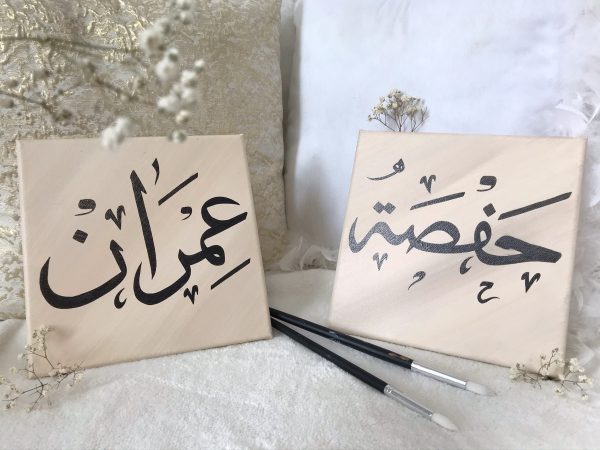 حَفْصَةُ
عِمْرَان